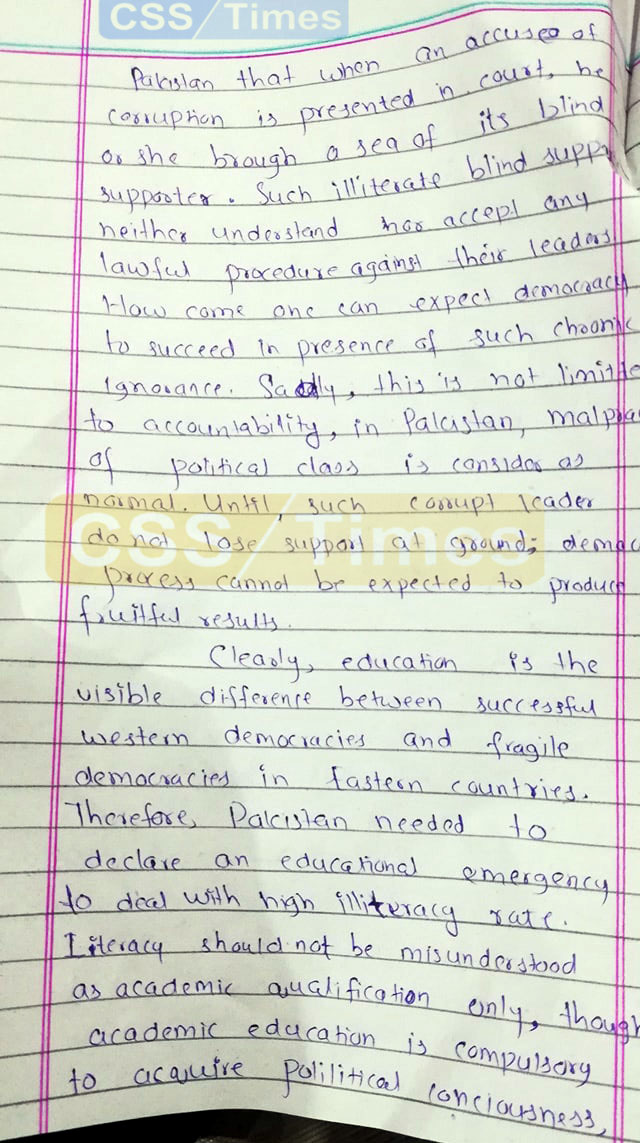 CSS/Times
Pakistan that when an accused of
corruption is presented in court, he
or she brough a sea of its blind
supporter. Such illiterate blind suppo
neither understand nor accept any
lawful procedure against their leaders.
How come one can expect democracy
to succeed in presence of such choonic
Ignorance. Sadly, this is not limite
to accountability, in Pakistan, malprac
of political class is consider as
normal. Until, such corrupt leader
do not lose support at ground; democ
process cannot be expected to produce
fruitful results.
CSS/Times
Clearly, education is the
visible difference between successful
western democracies and fragile
democracies in Eastern countries.
Therefore, Pakistan needed to
declare an educational emergency
to deal with high illiteracy rate.
Literacy should not be misunderstood
as academic qualification only, though
academic education is compulsory
to acquire polilitical conciousness,